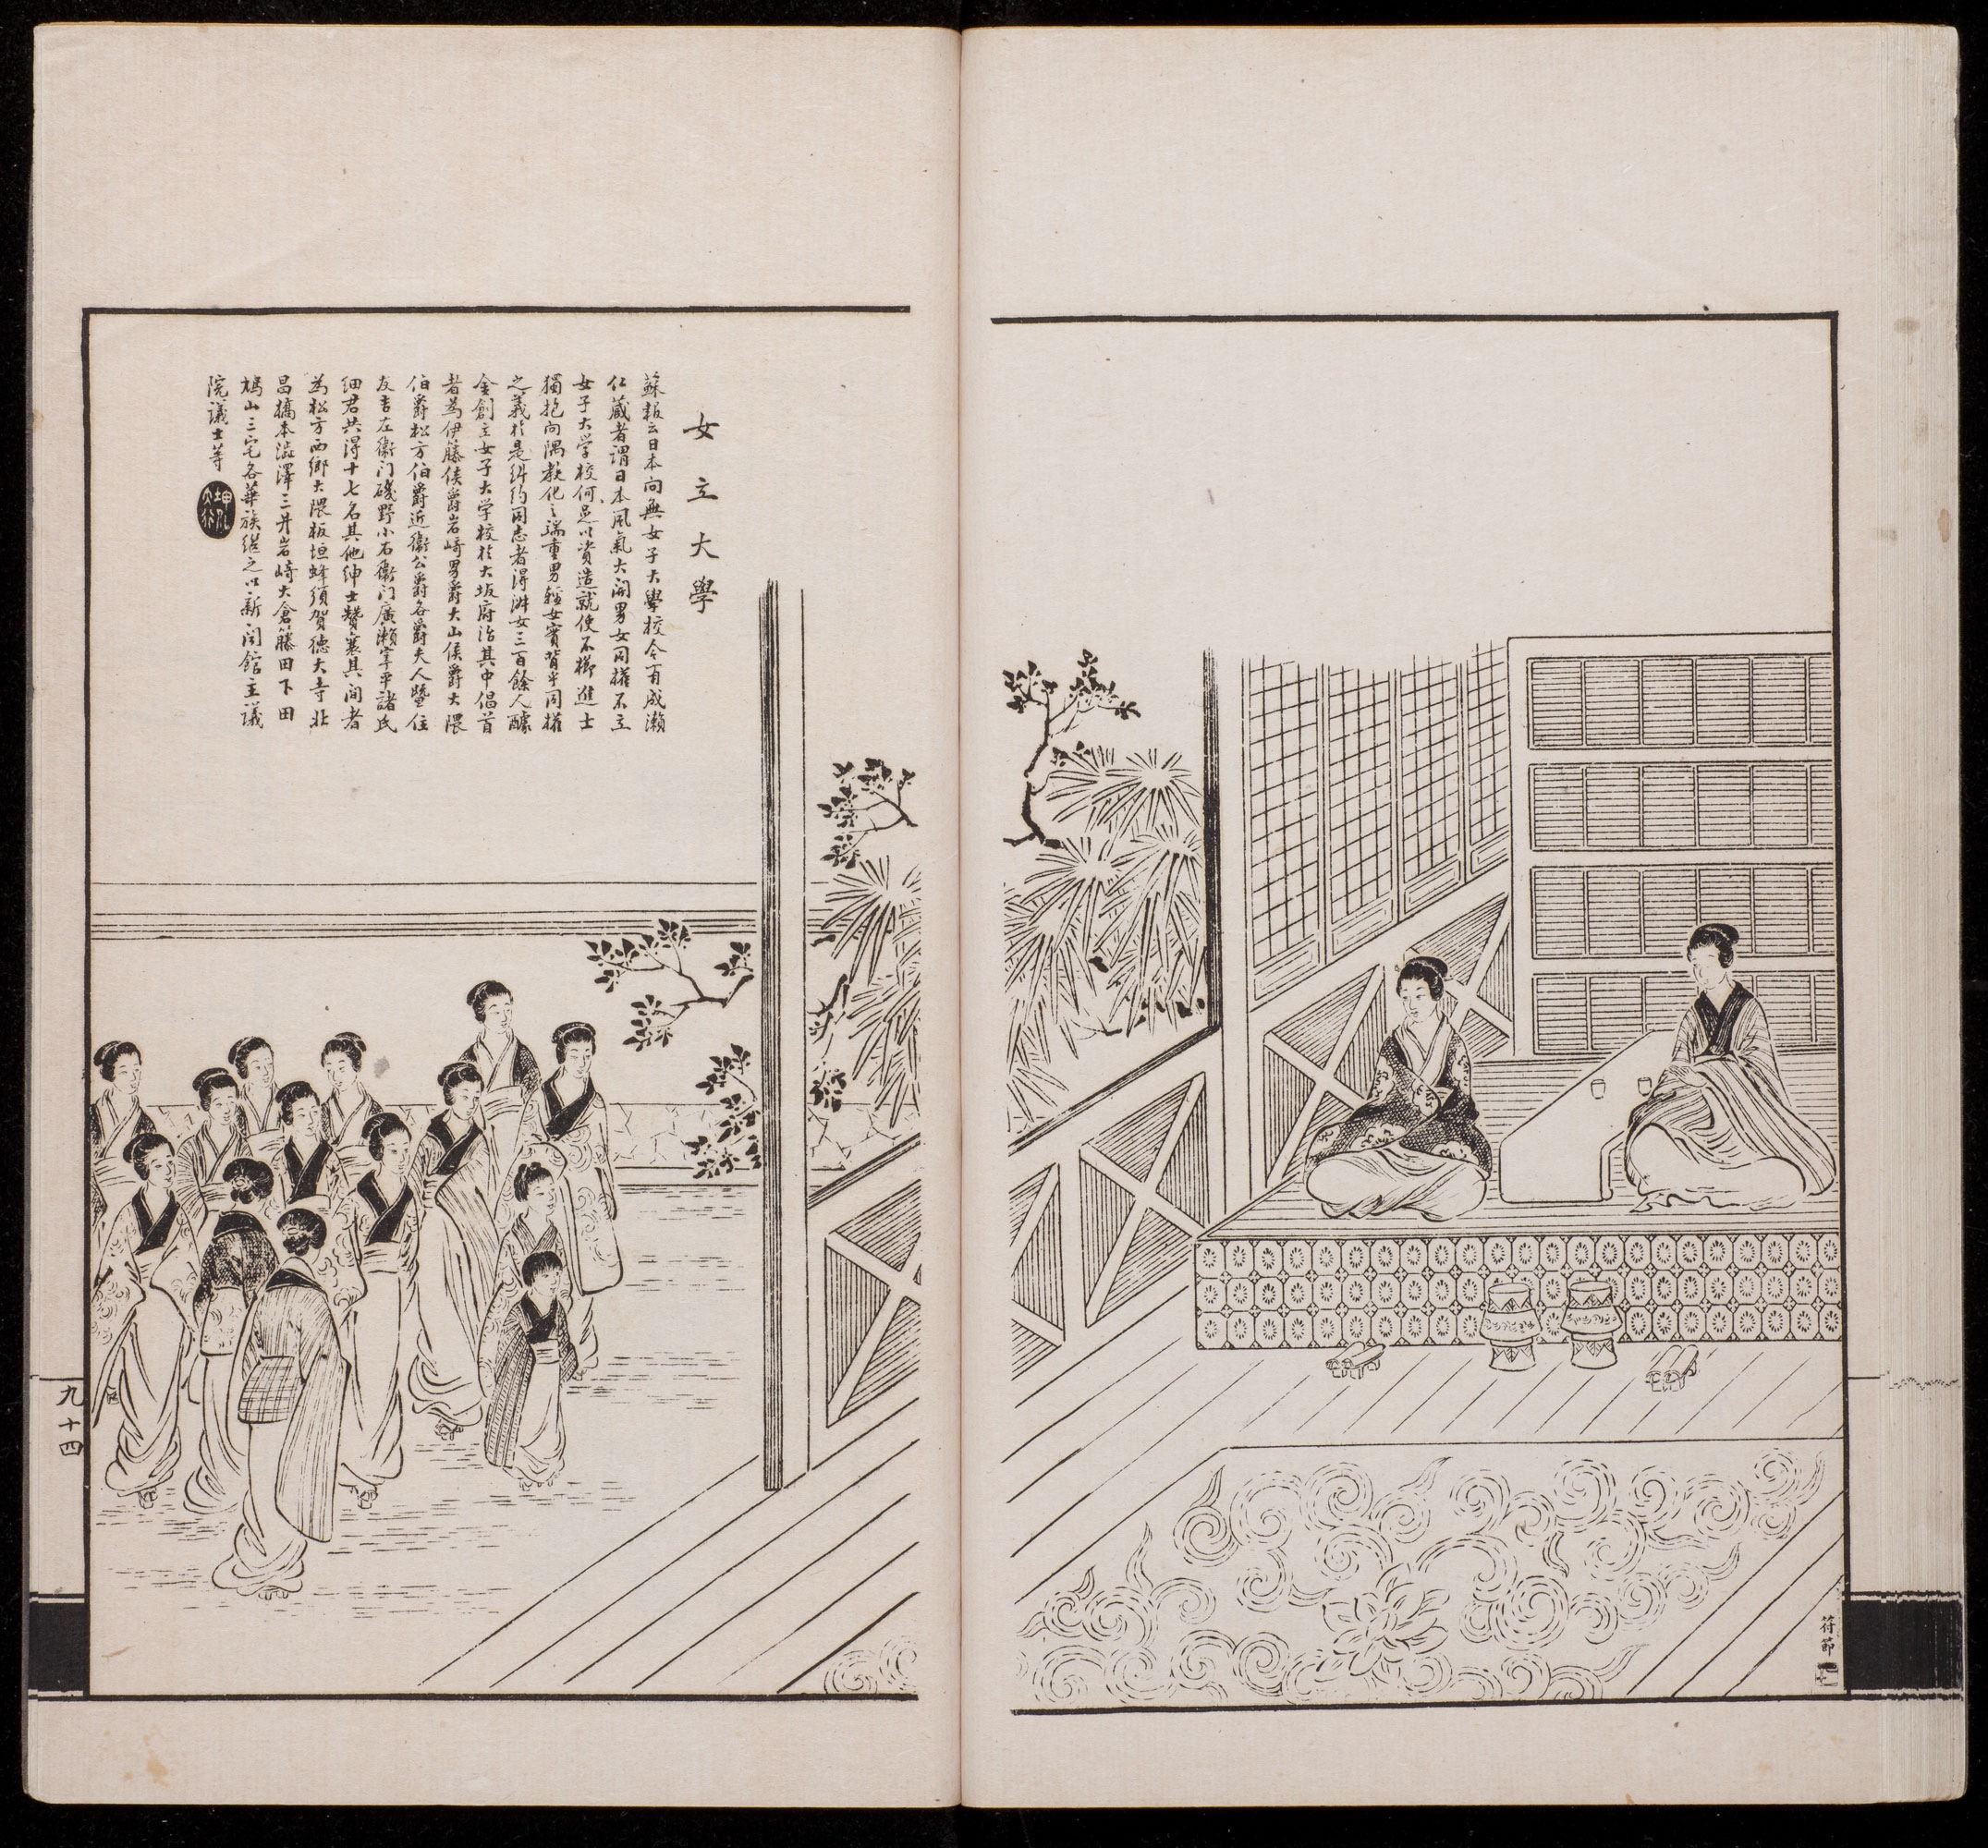 女立大學
蘇報云日本向無女子大學校今有成瀨
仁蔵者謂日本風氣大開男女同權不立
女子大学校何足以資造就使不櫛進士
獨抱向隅教化之端重男輕女實背乎同權
之義於是糾約同志者得淑女三百餘人醵
金創立女子大学校於大坂府治其中倡首
者為伊籐侯爵岩崎男爵大山侯爵大隈
伯爵松方伯爵近衛公爵各爵夫人曁住
友吉左衛门磯野小右衛门廣瀨宰平諸氏
細君共得十七名其他紳士贊襄其间者
為松方西鄉大隈板垣蜂須賀德大寺北
昌橋本澁澤三井岩崎大倉籐田下田
鳩山三宅各華族繼之以新闻館主議
院議士等
九十四
符節